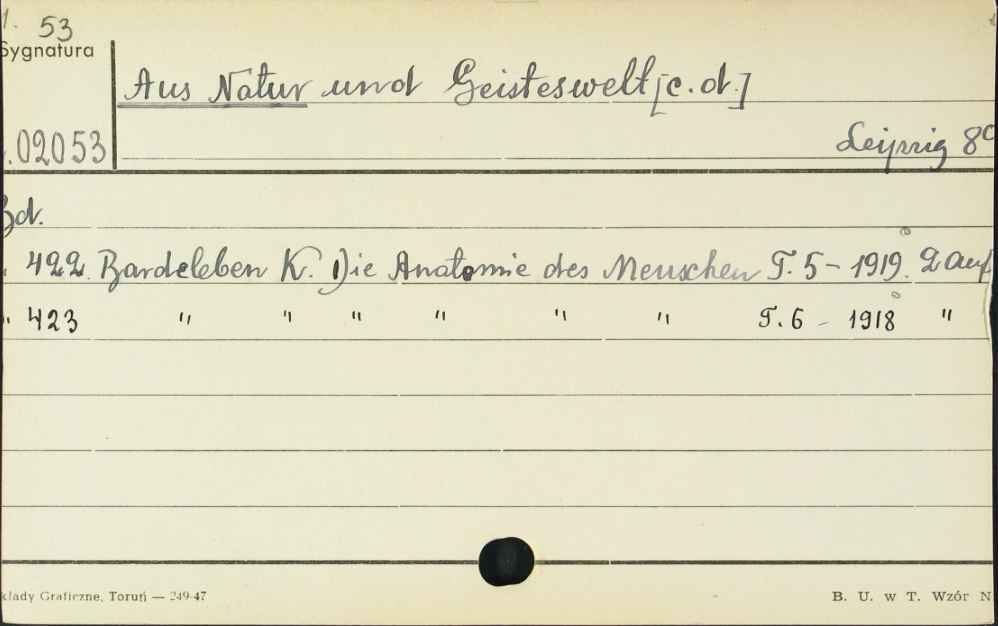 53
Sygnatura
Aus Natur und Geisteswelt [c.d.]
02053
Leipzig 8°
Bd.
422. Bardeleben K. Die Anatomie des Menschen T. 5 – 1919. 2 Auf
" 423 " " " " " " T. 6 – 1918 "
kłady Graficzne, Toruń — 249-47
B. U. w T. Wzór N